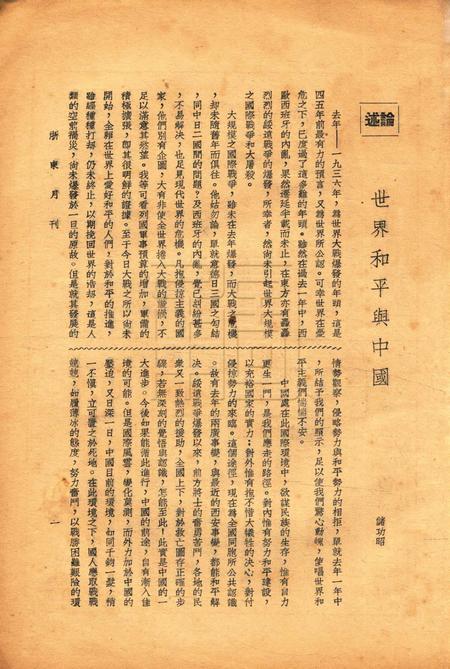 論述
世界和平與中國
諸功昭
去年——一九三六年，為世界大戰爆發的年頭，這是
四五年前最有力的預言，又為世界所公認。可幸世界在憂
危之下，已度過了這多難的年頭。雖然在過去一年中，西
歐西班牙的內亂，果然遷延半載而未止，在東方亦有轟轟
烈烈的綏遠戰爭的爆發，所幸者，然尚未引起世界大規模
之國際戰爭和大屠殺。
大規模之國際戰爭，雖未在去年爆發，而大戰之危機
，却未隨舊年而俱往。他姑勿論，單就意德日三國之勾結
，同中日二國間的問題，及西班牙的內亂，覺已糾紛甚多
，不易解決，也足見現代世界的危機。凡抱侵掠主義的國
家，他們別有企圖，大有非使全世界捲入大戰的漩渦，不
足以滿意其慾望。我等可看列國軍事預算的增加，軍備的
積極擴張，即其很明鮮的證據。至于今日大戰之所以尚未
開始，全賴在世界上愛好和平的人們，對於和平的推進，
雖經種種打却，仍未終止，以期挽回世界的浩刧，這是人
類的空前禍災，尚未爆發於一旦的原故。但是就其發展的
情勢觀察，侵略勢力與和平勢力的相拒，單就去年一年中
，所結予我們的顯示，足以使我們驚心動魄，使唱世界和
平主義們惴惴不安。
中國處在此國際環境中，欲謀民族的生存，惟有自力
更生一門，是我們應走的路徑。對內惟有努力和平建設，
以充裕國家的實力；對外惟有抱不惜大犧牲的決心，對付
侵掠勢力的來臨。這個途徑，現在為全國同胞所公共認識
。故有去年的兩廣事變，與最近的西安事變，都能和平解
決。綏遠戰爭爆發以來，前方將士的奮勇苦鬥，各地的民
衆又一致熱烈的援助，全國上下，對於救亡圖存正確的步
驟，若無深刻的覺悟與認識，怎能至此！此實是中國的一
大進步。今後如果能循此進行，中國的前途，自有漸入佳
境的可能。但是國際風雲，變化莫測，而外力加於中國的
壓迫，又日深一日，中國目前的環境，如同千鈞一髮，稍
一不慎，立可置之於死地。在此環境之下，國人應取戰戰
兢兢，如履薄冰的態度，努力奮鬥，以戰勝困難艱險的環
浙東月刊
一